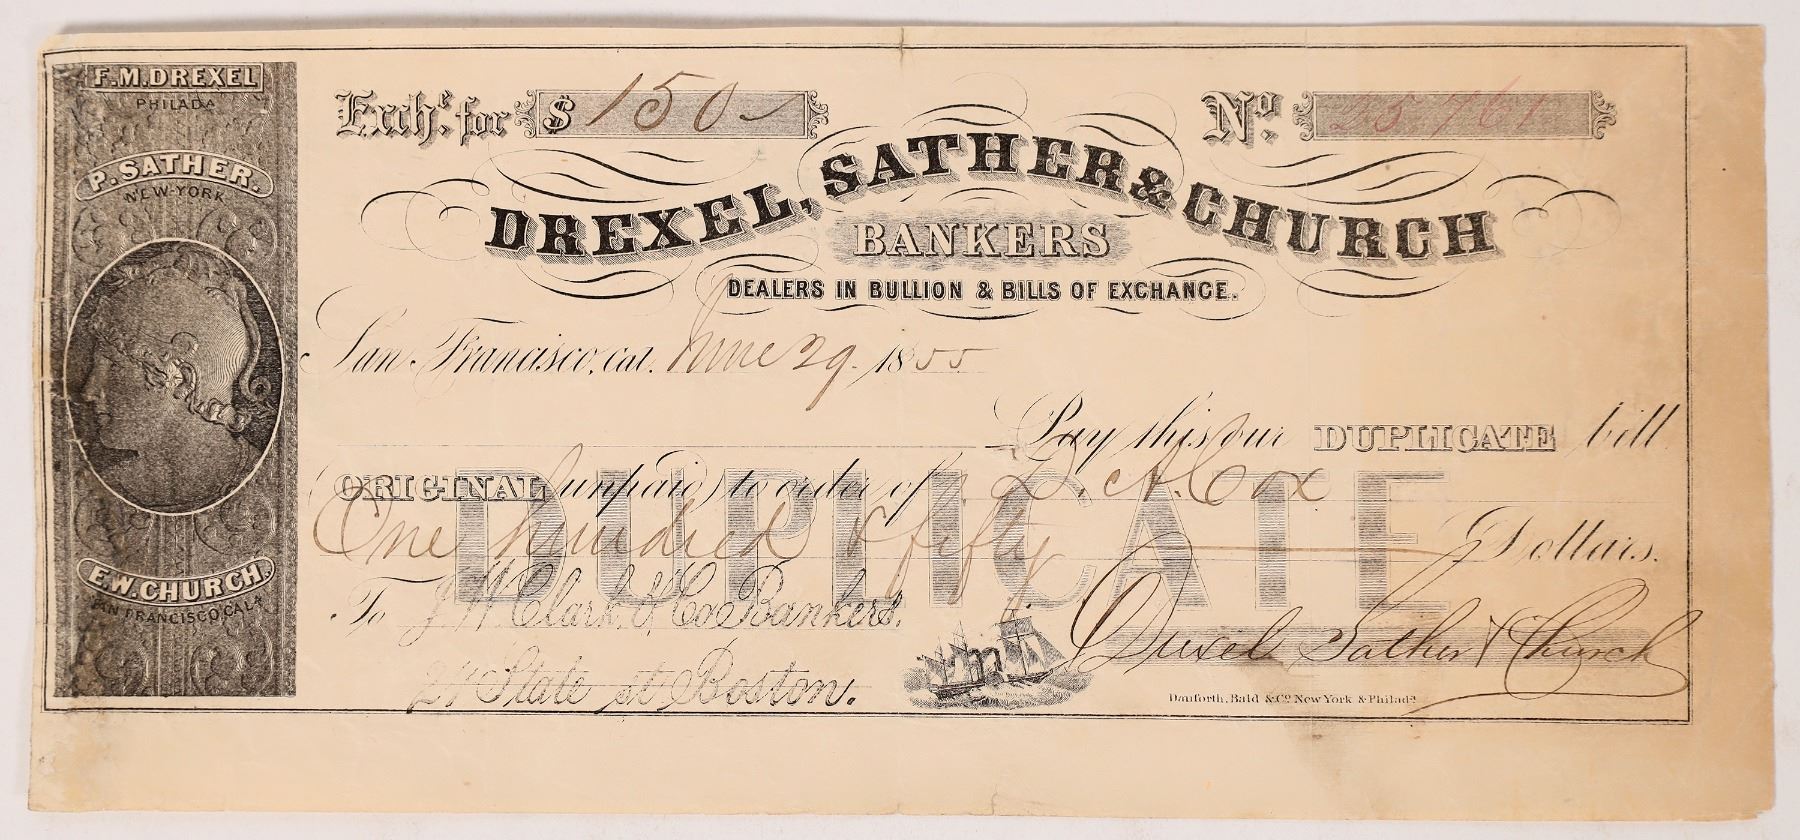 F.M.DREXEL
PHILADA
P. SATHER.
NEW-YORK
E.W. CHURCH.
SAN FRANCISCO, CALA
Exche. for $ 150
No. 25761
DREXEL, SATHER & CHURCH
BANKERS
DEALERS IN BULLION & BILLS OF EXCHANGE.
San Francisco, cal. June 29. 1855
Pay this our DUPLICATE bill
ORIGINAL unpaid) to order of D. A. Cox
DUPLICATE
One hundred & fifty Dollars.
To J. W. Clark & Co Bankers.
State st Boston.
Drexel Sather & Church
Danforth, Bald & Co. New York & Philada